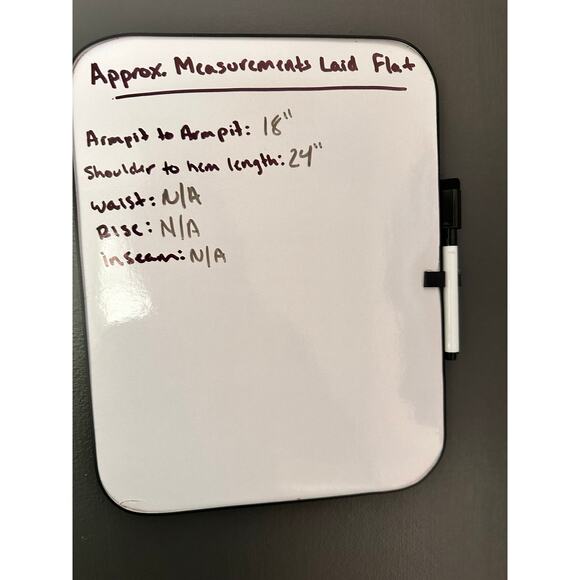 Approx. Measurements Laid Flat
Armpit to Armpit: 18"
Shoulder to hem length: 24"
waist: N/A
Rise: N/A
inseam: N/A